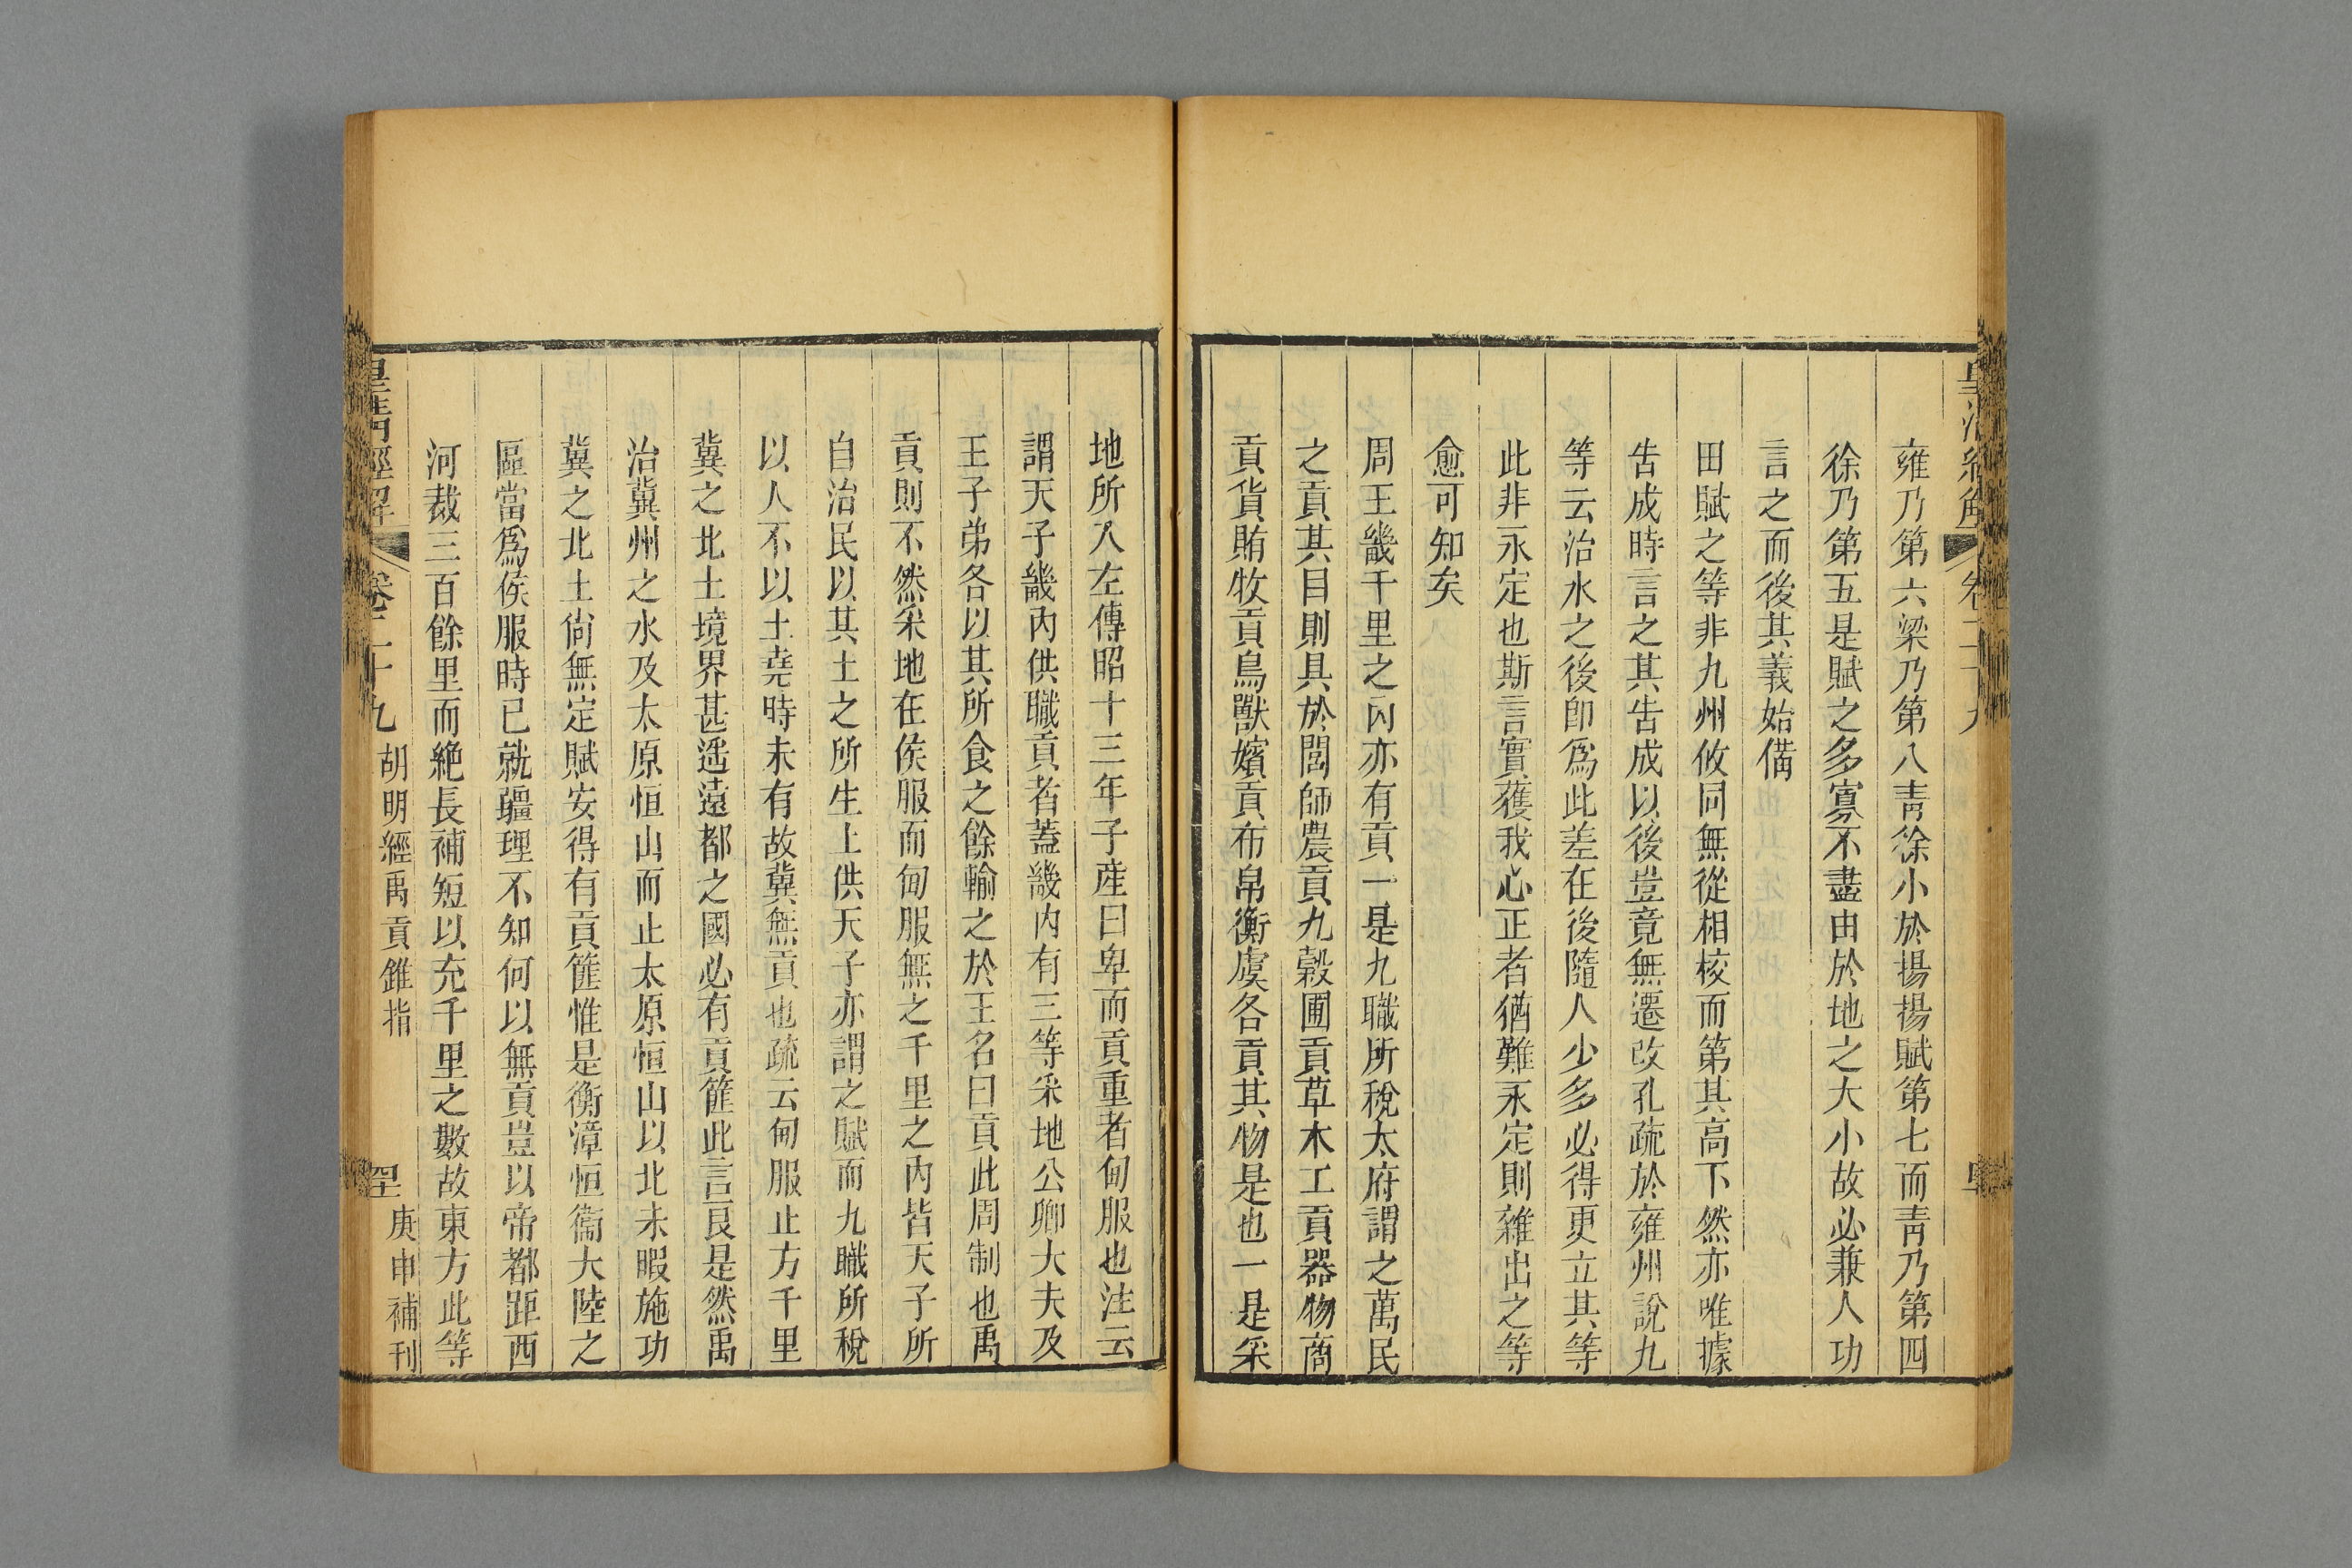 雍乃第六梁乃第八靑徐小於揚揚賦第七而靑乃第四
徐乃第五是賦之多寡不盡由於地之大小故必兼人功
言之而後其義始備
田賦之等非九州攸同無從相校而第其高下然亦唯據
告成時言之其告成以後豈竟無遷改孔疏於雍州說九
等云治水之後卽爲此差在後隨人少多必得更立其等
此非永定也斯言實獲我心正者猶難永定則雜出之等
愈可知矣
周王畿千里之內亦有貢一是九職所稅太府謂之萬民
之貢其目則具於閭師農貢九穀圃貢草木工貢器物商
貢貨賄牧貢鳥獸嬪貢布帛衡虞各貢其物是也一是采
地所入左傳昭十三年子產曰卑而貢重者甸服也注云
謂天子畿內供職貢者蓋畿內有三等采地公卿大夫及
王子弟各以其所食之餘輸之於王名曰貢此周制也禹
貢則不然采地在侯服而甸服無之千里之內皆天子所
自治民以其土之所生上供天子亦謂之賦而九職所稅
以人不以土堯時未有故冀無貢也疏云甸服止方千里
冀之北土境界甚遙遠都之國必有貢篚此言良是然禹
治冀州之水及太原恒山而止太原恒山以北未暇施功
冀之北土尙無定賦安得有貢篚惟是衡漳恒衞大陸之
區當爲侯服時已就疆理不知何以無貢豈以帝都距西
河裁三百餘里而絕長補短以充千里之數故東方此等
皇淸經解 卷二十九 胡明經禹貢錐指 庚申補刊